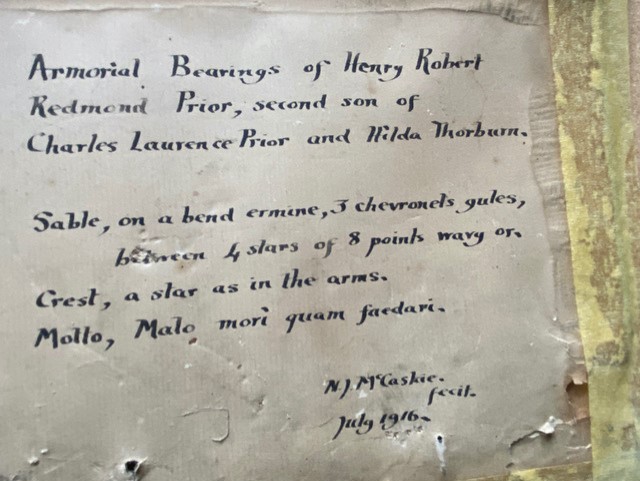 Armorial Bearings of Henry Robert
Redmond Prior, second son of
Charles Laurence Prior and Hilda Thorburn.
Sable, on a bend ermine, 3 chevronels gules,
between 4 stars of 8 points wavy or.
Crest, a star as in the arms.
Motto, Malo mori quam faedari.
N.J. McCaskie.
fecit.
July 1916.